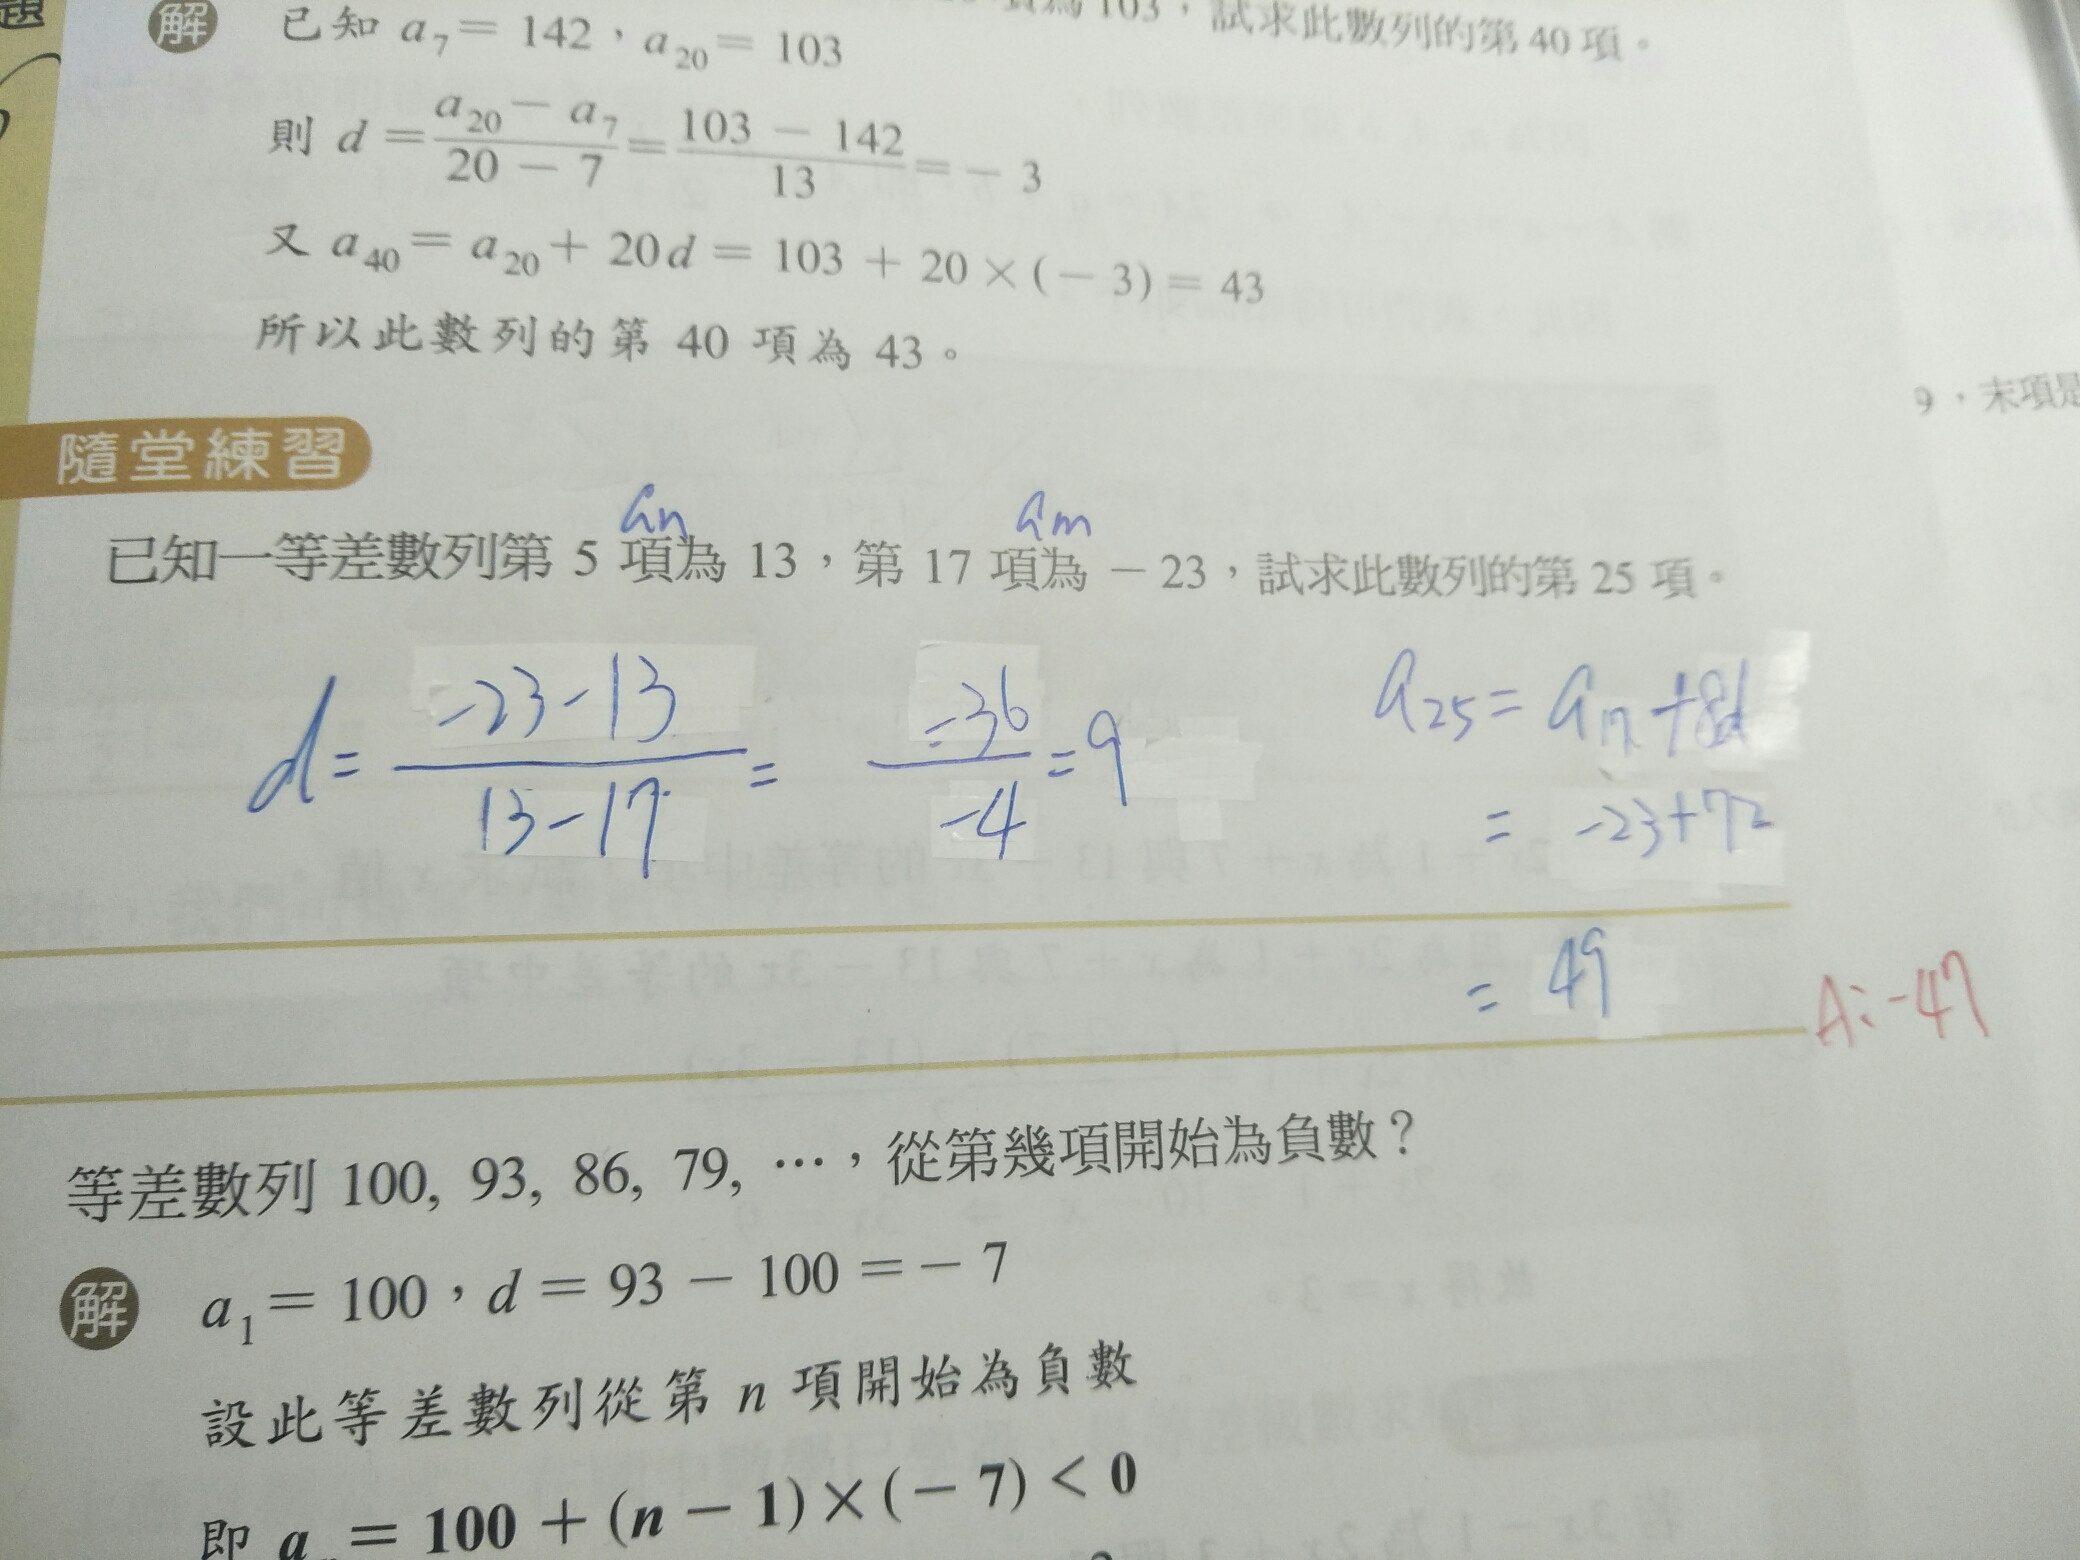 題
項為 103，試求此數列的第 40 項。
解 已知 a₇ = 142，a₂₀ = 103
則 d = (a₂₀ − a₇)/(20 − 7) = (103 − 142)/13 = − 3
又 a₄₀ = a₂₀ + 20d = 103 + 20 × (− 3) = 43
所以此數列的第 40 項為 43。
9，末項是
隨堂練習
an am
已知一等差數列第 5 項為 13，第 17 項為 − 23，試求此數列的第 25 項。
d = (-23-13)/(13-17) = (-36)/(-4) = 9
a₂₅ = a₁₇ + 8d
= -23+72
= 49
A: -47
等差數列 100, 93, 86, 79, …，從第幾項開始為負數？
解 a₁ = 100，d = 93 − 100 = − 7
設此等差數列從第 n 項開始為負數
即 aₙ = 100 + (n − 1) × (− 7) < 0